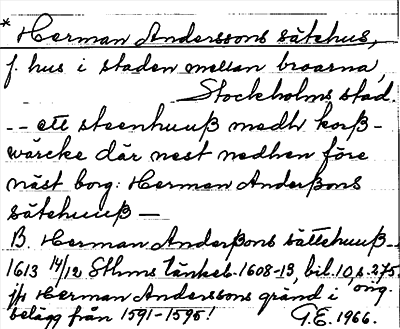 * Herman Anderssons sätehus,
f. hus i staden mellan broarna,
Stockholms stad.
-- ett steenhuuß medh korß-
wärcke där nest nedhen före
näst borg: Herman Anderßons
sätehuuß —
B. Herman Anderßons sättehuuß --
1613 14/12 Sthms tänkeb. 1608-13, bil. 10, s. 275.
jfr Herman Anderssons gränd i orig.
belägg från 1591-1595!
G.E. 1966.